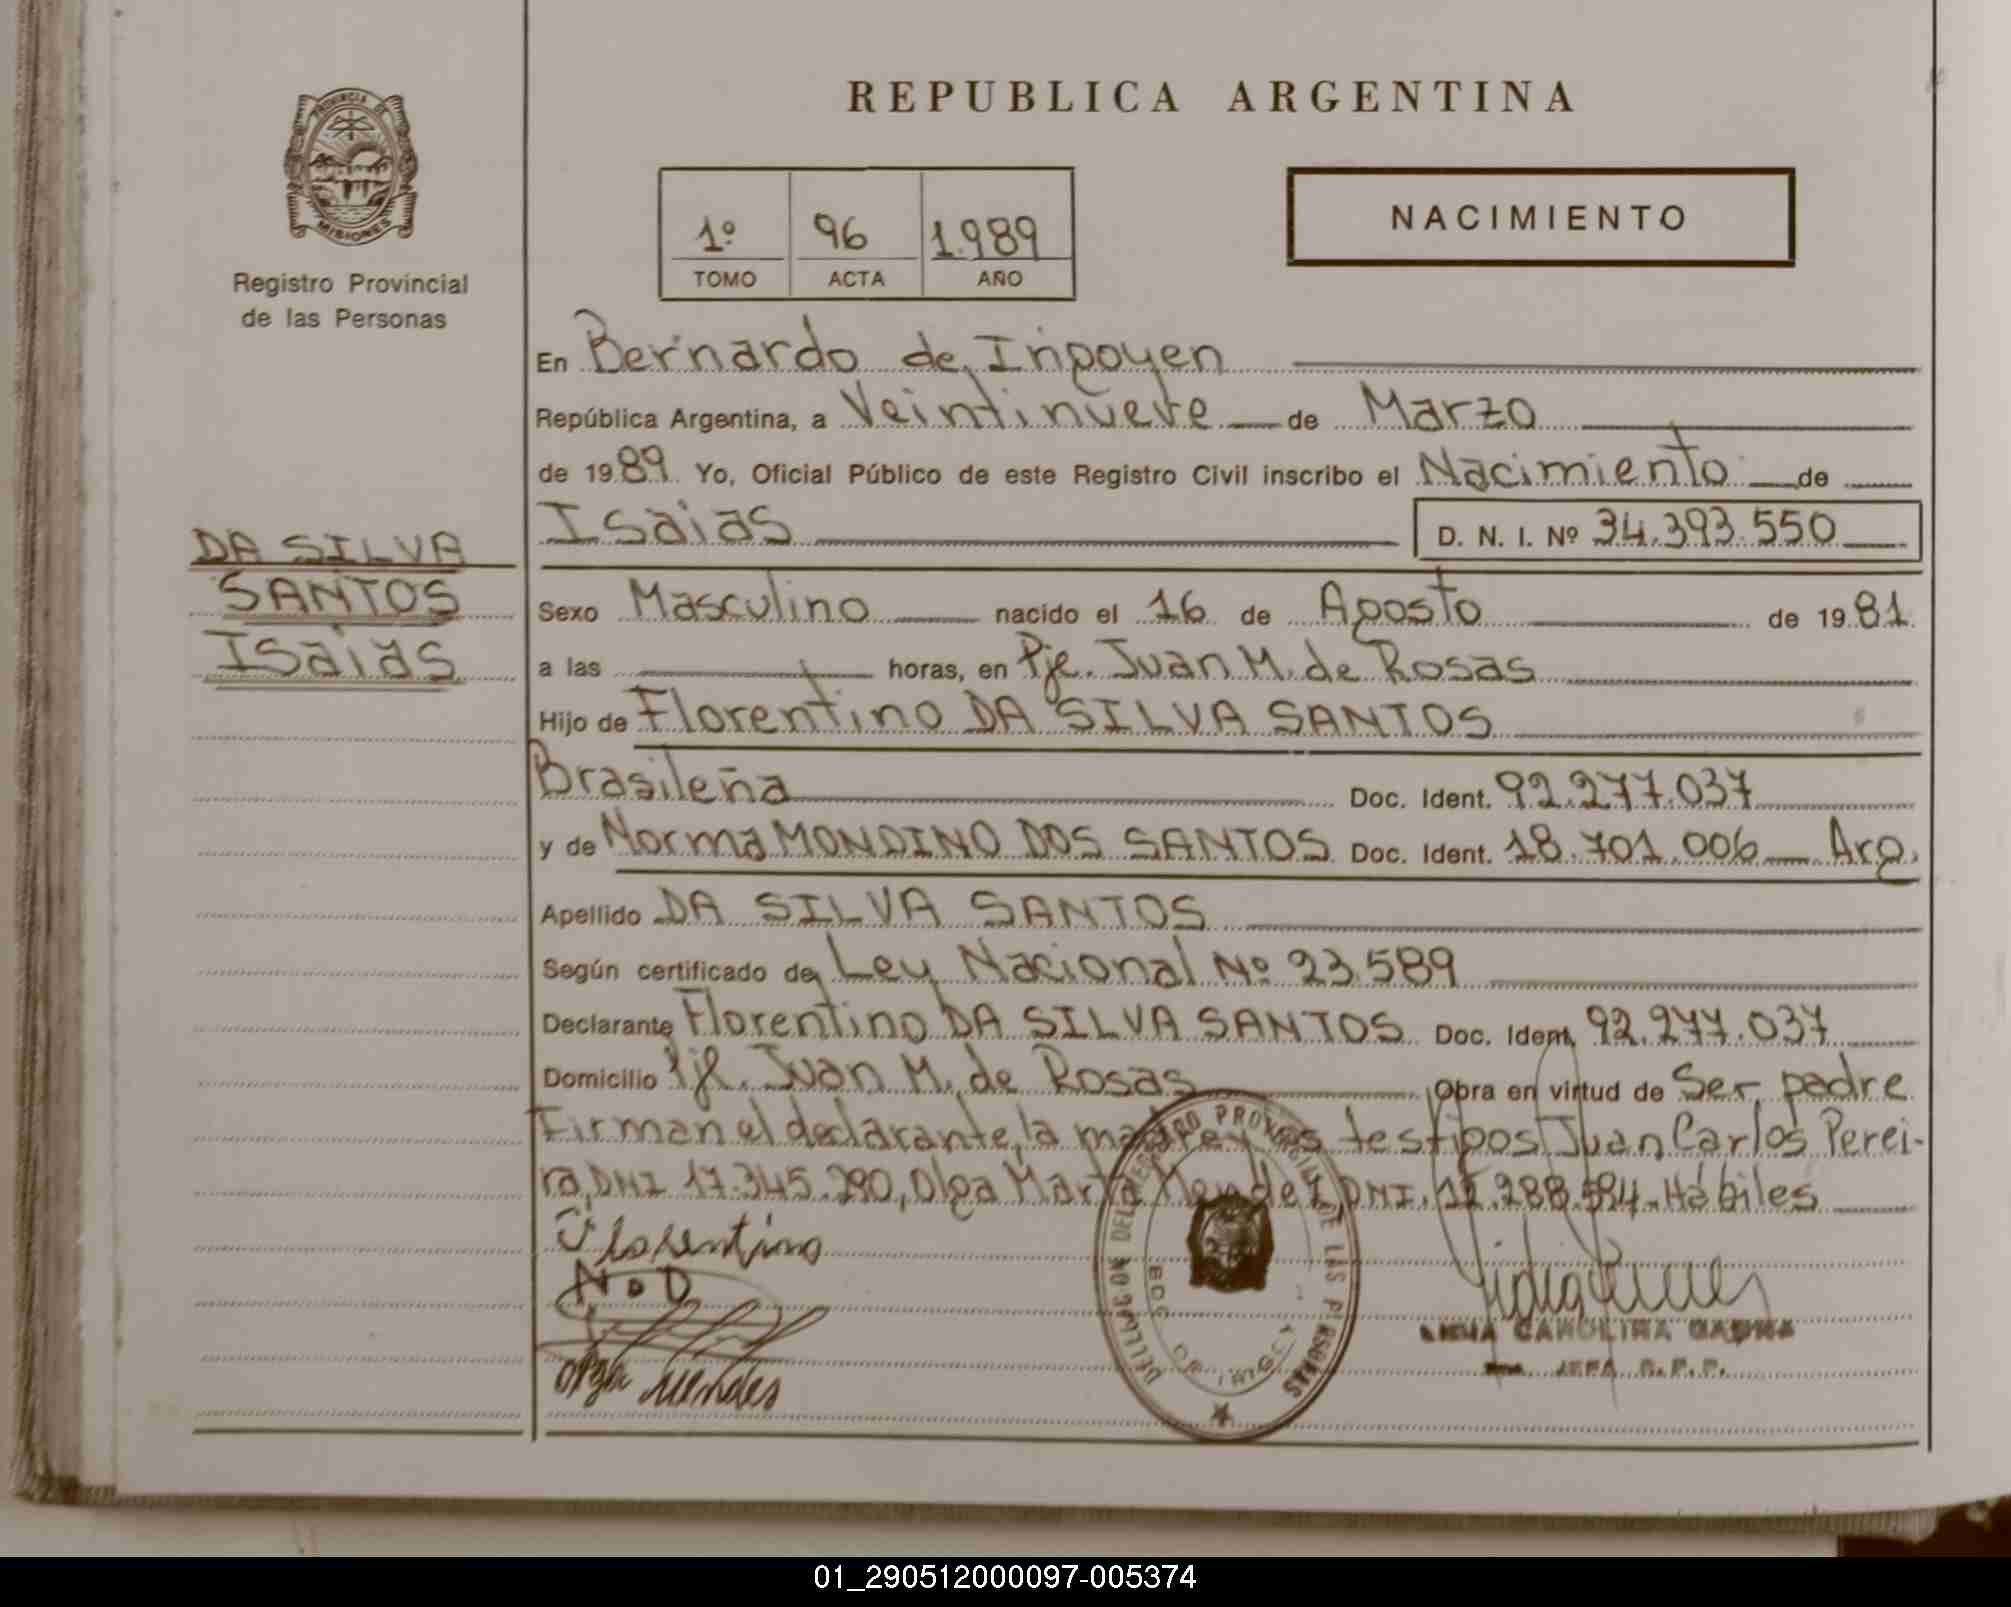 REPUBLICA ARGENTINA
PROVINCIA DE
MISIONES
Registro Provincial
de las Personas
1º 96 1.989
TOMO ACTA AÑO
NACIMIENTO
En Bernardo de Irigoyen
República Argentina, a Veintinueve de Marzo
de 1989 Yo, Oficial Público de este Registro Civil inscribo el Nacimiento de
Isaias D. N. I. Nº 34.393.550
DA SILVA
SANTOS
Isaias
Sexo Masculino nacido el 16 de Agosto de 1981
a las horas, en Pje. Juan M. de Rosas
Hijo de Florentino DA SILVA SANTOS
Brasileña Doc. Ident. 92.277.037
y de Norma MONDINO DOS SANTOS Doc. Ident. 18.701.006 Arg.
Apellido DA SILVA SANTOS
Según certificado de Ley Nacional Nº 23.589
Declarante Florentino DA SILVA SANTOS Doc. Ident. 92.277.037
Domicilio Pje. Juan M. de Rosas Obra en virtud de Ser padre
Firman el declarante, la madre y los testigos Juan Carlos Perei-
ra, DNI 17.345.290, Olga Marta Mendez DNI. 12.288.594. Hábiles
Florentino
N.D
Olga Mendes
DELEGACION DEL REGISTRO PROVINCIAL DE LAS PERSONAS
BDO DE IRIGOY
CAROLINA
JEFA R.P.P.
01_290512000097-005374